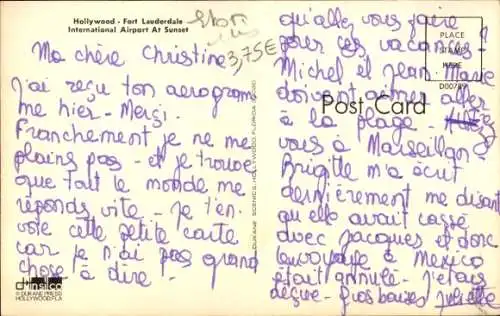 Hollywood - Fort Lauderdale
International Airport At Sunset
3,75€
Ma chère Christine
J'ai reçu ton aerogramme
me hier - Merçi.
Franchement je ne me
plains pas - et je trouve
que tout le monde me
réponds vite - je t'en
voie cette petite carte
car je n'ai pas grand
chose à dire -
© DUKANE PRESS
HOLLYWOOD, FLA
DUKANE SCENICS, HOLLYWOOD, FLORIDA
Post Card
PLACE
STAMP
HERE
D00789
qu'allez vous faire
pour ces vacances?
Michel et Jean Marie
doivent aimer aller
à la plage - Allez
vous à Marseillan?
Brigitte m'a écrit
dernièrement me disant
qu'elle avait cassé
avec Jacques et donc
le voyage à Mexico
était annulé - J'étais
déçue - Gros baisers Juliette